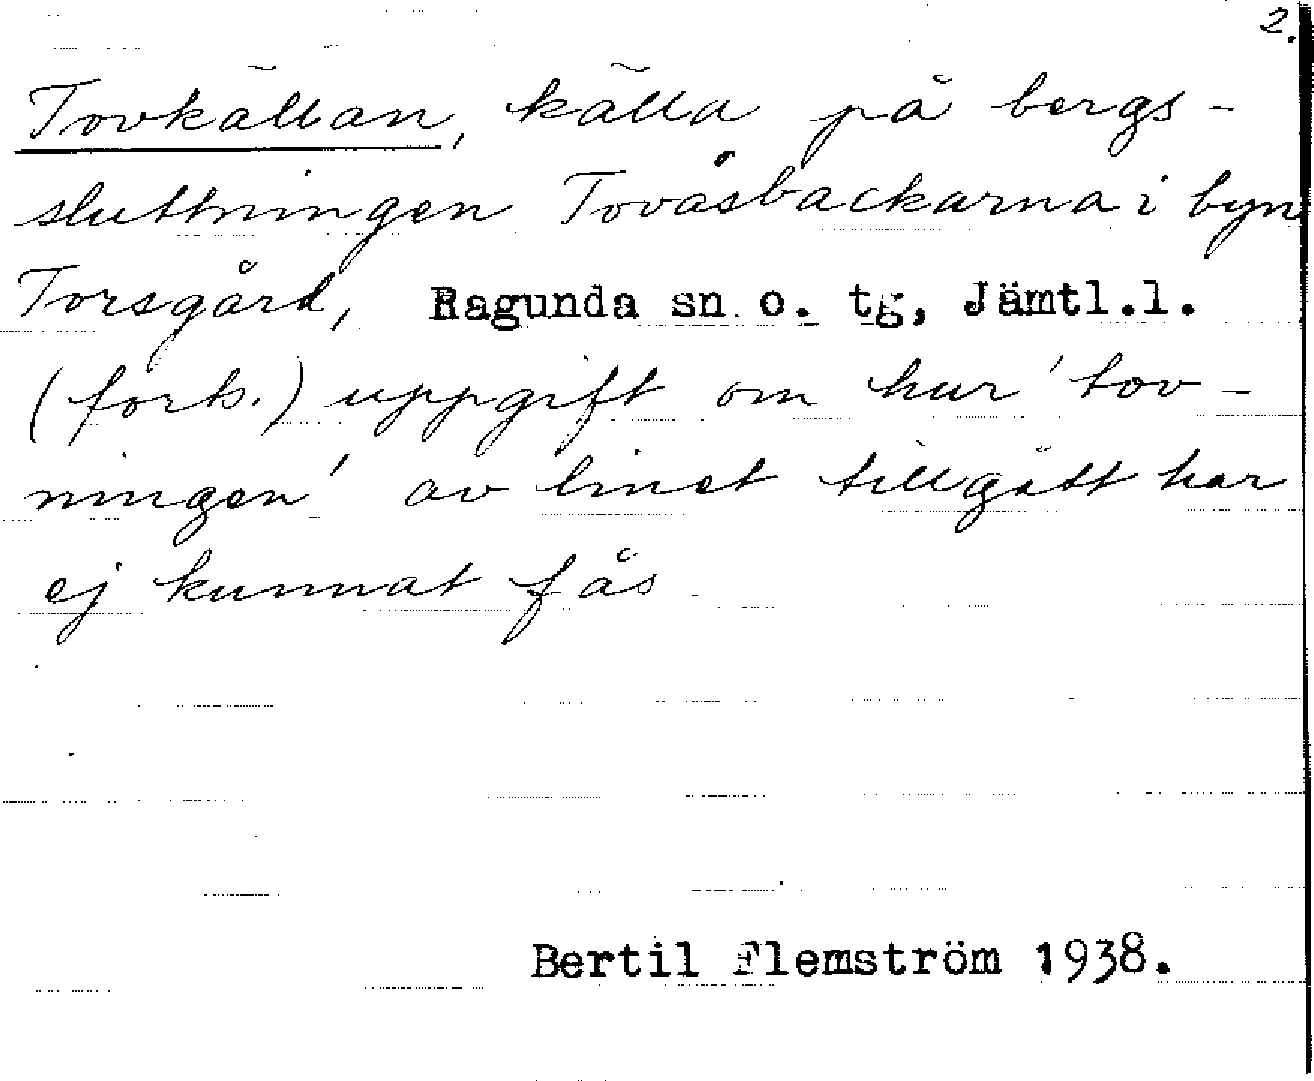 2.
Tovkällan, källa på bergs-
sluttningen Tovåsbackarna i byn
Torsgård, Ragunda sn o. tg, Jämtl.l.
(forts.) uppgift om hur 'tov-
ningen' av linet tillgått har
ej kunnat fås
Bertil Flemström 1938.